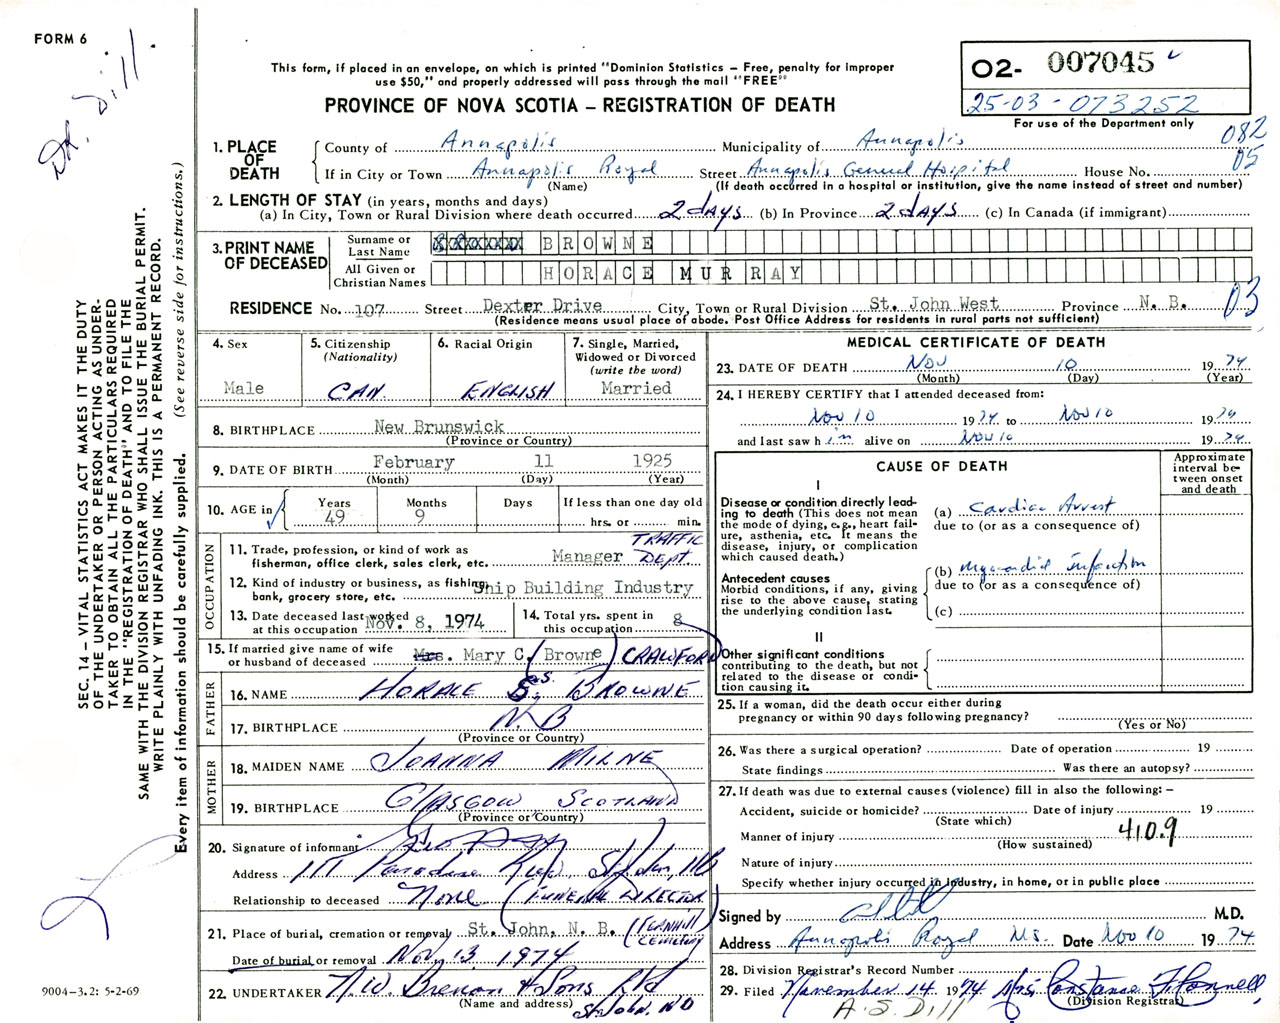 FORM 6
Dr. Dill.
This form, if placed in an envelope, on which is printed "Dominion Statistics — Free, penalty for improper
use $50," and properly addressed will pass through the mail "FREE"
PROVINCE OF NOVA SCOTIA — REGISTRATION OF DEATH
O2- 007045
25-03-073252
For use of the Department only
082
05
1. PLACE OF DEATH
County of Annapolis Municipality of Annapolis
If in City or Town Annapolis Royal Street Annapolis General Hospital House No.
(Name) (If death occurred in a hospital or institution, give the name instead of street and number)
2. LENGTH OF STAY (in years, months and days)
(a) In City, Town or Rural Division where death occurred 2 days (b) In Province 2 days (c) In Canada (if immigrant)
3. PRINT NAME OF DECEASED
Surname or Last Name BROWNE
All Given or Christian Names HORACE MURRAY
RESIDENCE No. 107 Street Dexter Drive City, Town or Rural Division St. John West Province N. B. 03
(Residence means usual place of abode. Post Office Address for residents in rural parts not sufficient)
4. Sex
Male
5. Citizenship
(Nationality)
CAN.
6. Racial Origin
ENGLISH
7. Single, Married,
Widowed or Divorced
(write the word)
Married
8. BIRTHPLACE New Brunswick
(Province or Country)
9. DATE OF BIRTH February 11 1925
(Month) (Day) (Year)
10. AGE in
Years Months Days If less than one day old
49 9 hrs. or min.
OCCUPATION
11. Trade, profession, or kind of work as
fisherman, office clerk, sales clerk, etc. Manager TRAFFIC DEPT.
12. Kind of industry or business, as fishing,
bank, grocery store, etc. Ship Building Industry
13. Date deceased last worked
at this occupation Nov. 8, 1974
14. Total yrs. spent in
this occupation 8
15. If married give name of wife
or husband of deceased Mrs. Mary C. (Browne) CRAWFORD
FATHER
16. NAME HORACE S. BROWNE
17. BIRTHPLACE N.B
(Province or Country)
MOTHER
18. MAIDEN NAME JOANNA MILNE
19. BIRTHPLACE GLASGOW SCOTLAND
(Province or Country)
20. Signature of informant
Address 111 Paradise Row, St. John, NB
Relationship to deceased None (FUNERAL DIRECTOR)
21. Place of burial, cremation or removal St. John, N. B. (FERNHILL CEMETERY)
Date of burial or removal Nov. 13, 1974
22. UNDERTAKER N.W. Brenan & Sons Ltd
(Name and address) St. John, NB
MEDICAL CERTIFICATE OF DEATH
23. DATE OF DEATH Nov 10 19 74
(Month) (Day) (Year)
24. I HEREBY CERTIFY that I attended deceased from:
Nov 10 19 74 to Nov 10 19 74
and last saw him alive on Nov 10 19 74
CAUSE OF DEATH
Approximate
interval be-
tween onset
and death
I
Disease or condition directly lead-
ing to death (This does not mean
the mode of dying, e.g., heart fail-
ure, asthenia, etc. It means the
disease, injury, or complication
which caused death.)
(a) Cardiac Arrest
due to (or as a consequence of)
Antecedent causes
Morbid conditions, if any, giving
rise to the above cause, stating
the underlying condition last.
(b) Myocardial Infarction
due to (or as a consequence of)
(c)
II
Other significant conditions
contributing to the death, but not
related to the disease or condi-
tion causing it.
25. If a woman, did the death occur either during
pregnancy or within 90 days following pregnancy?
(Yes or No)
26. Was there a surgical operation? Date of operation 19
State findings Was there an autopsy?
27. If death was due to external causes (violence) fill in also the following: —
Accident, suicide or homicide? Date of injury 19
(State which)
Manner of injury 410.9
(How sustained)
Nature of injury
Specify whether injury occurred in industry, in home, or in public place
Signed by M.D.
Address Annapolis Royal N.S. Date Nov 10 19 74
28. Division Registrar's Record Number
29. Filed November 14 1974 Mrs. Constance
(Division Registrar)
A. S. Dill
SEC. 14 — VITAL STATISTICS ACT MAKES IT THE DUTY
OF THE UNDERTAKER OR PERSON ACTING AS UNDER-
TAKER TO OBTAIN ALL THE PARTICULARS REQUIRED
IN THE "REGISTRATION OF DEATH" AND TO FILE THE
SAME WITH THE DIVISION REGISTRAR WHO SHALL ISSUE THE BURIAL PERMIT.
WRITE PLAINLY WITH UNFADING INK. THIS IS A PERMANENT RECORD.
Every item of information should be carefully supplied. (See reverse side for instructions.)
9004-3.2: 5-2-69